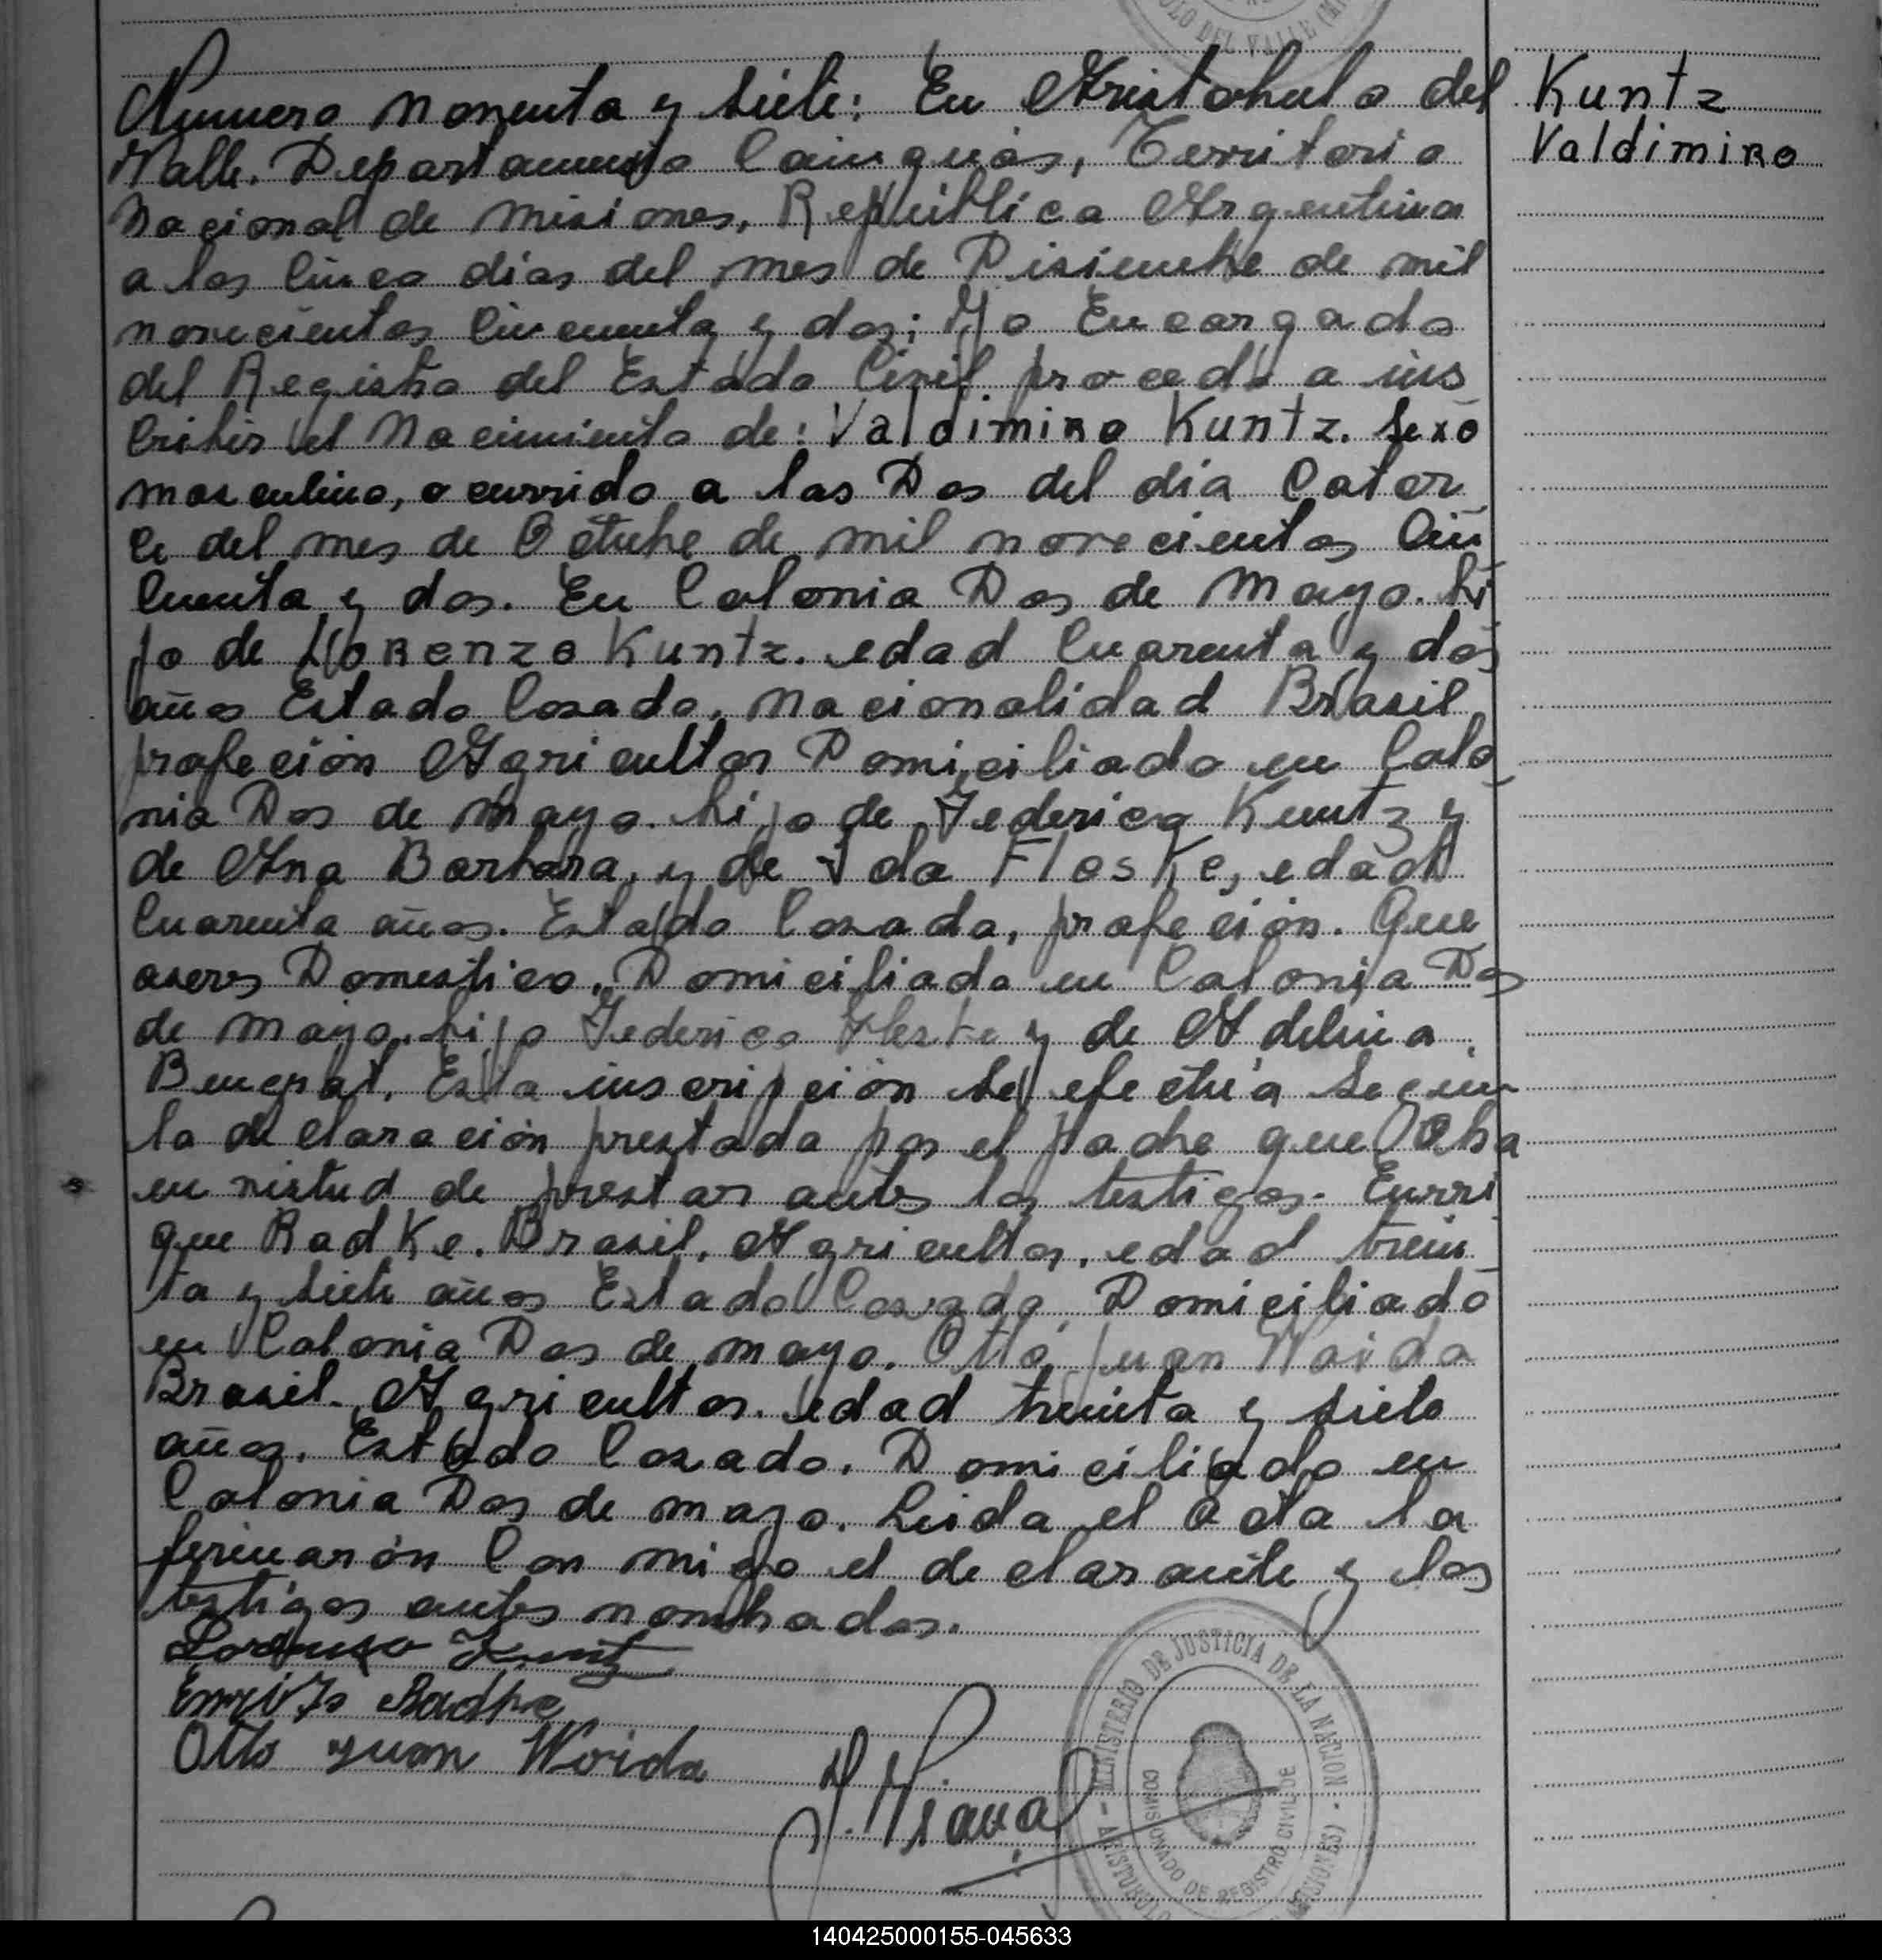 OLO DEL VALLE (MI
Numero nonenta y siete: En Aristobulo del
Valle. Departamento Cainguás, Territorio
Nacional de Misiones, República Argentina
a los Cinco dias del mes de Disiembre de mil
novecientos Cincuenta y dos; Yo Encargado
del Registro del Estado Civil procedo a ins
Cribir el Nacimiento de: Valdimiro Kuntz. Sexo
masculino, ocurrido a las Dos del dia Cator
ce del mes de Octubre de mil novecientos Cin
Cuenta y dos. En Colonia Dos de Mayo. hi
jo de Lorenzo Kuntz. edad Cuarenta y dos
años Estado Casado. Nacionalidad Brasil
profeción Agricultor Domiciliado en Colo
nia Dos de Mayo. hijo de Federico Kuntz y
de Ana Barbara, y de Ida Fleske, edad
Cuarenta años. Estado Casada, profeción. Que
aseres Domestico. Domiciliada en Colonia Dos
de mayo. hijo Federico Fleske y de Adelina
Esta inscripción se efectúa segun
la declaración prestada por el padre que Obra
en vistud de prestar antes los testigos. Enrri
que Radke. Brasil, Agricultor, edad trein
ta y siete años Estado Casado, Domiciliado
en Colonia Dos de mayo. Otto Juan Woida
Brasil. Agricultor. edad treinta y siete
años. Estado Casado. Domiciliado en
Colonia Dos de mayo. Leida el acta la
firmarón Con migo el declarante y los
testigos antes nombrados.
Lorenzo Kuntz
Radke
Otto Juan Woida
MINISTERIO DE JUSTICIA DE LA NACION - ARISTOBULO MISIONES)
COMISIONADO DE REGISTRO CIVIL DE
Kuntz
Valdimiro
140425000155-045633